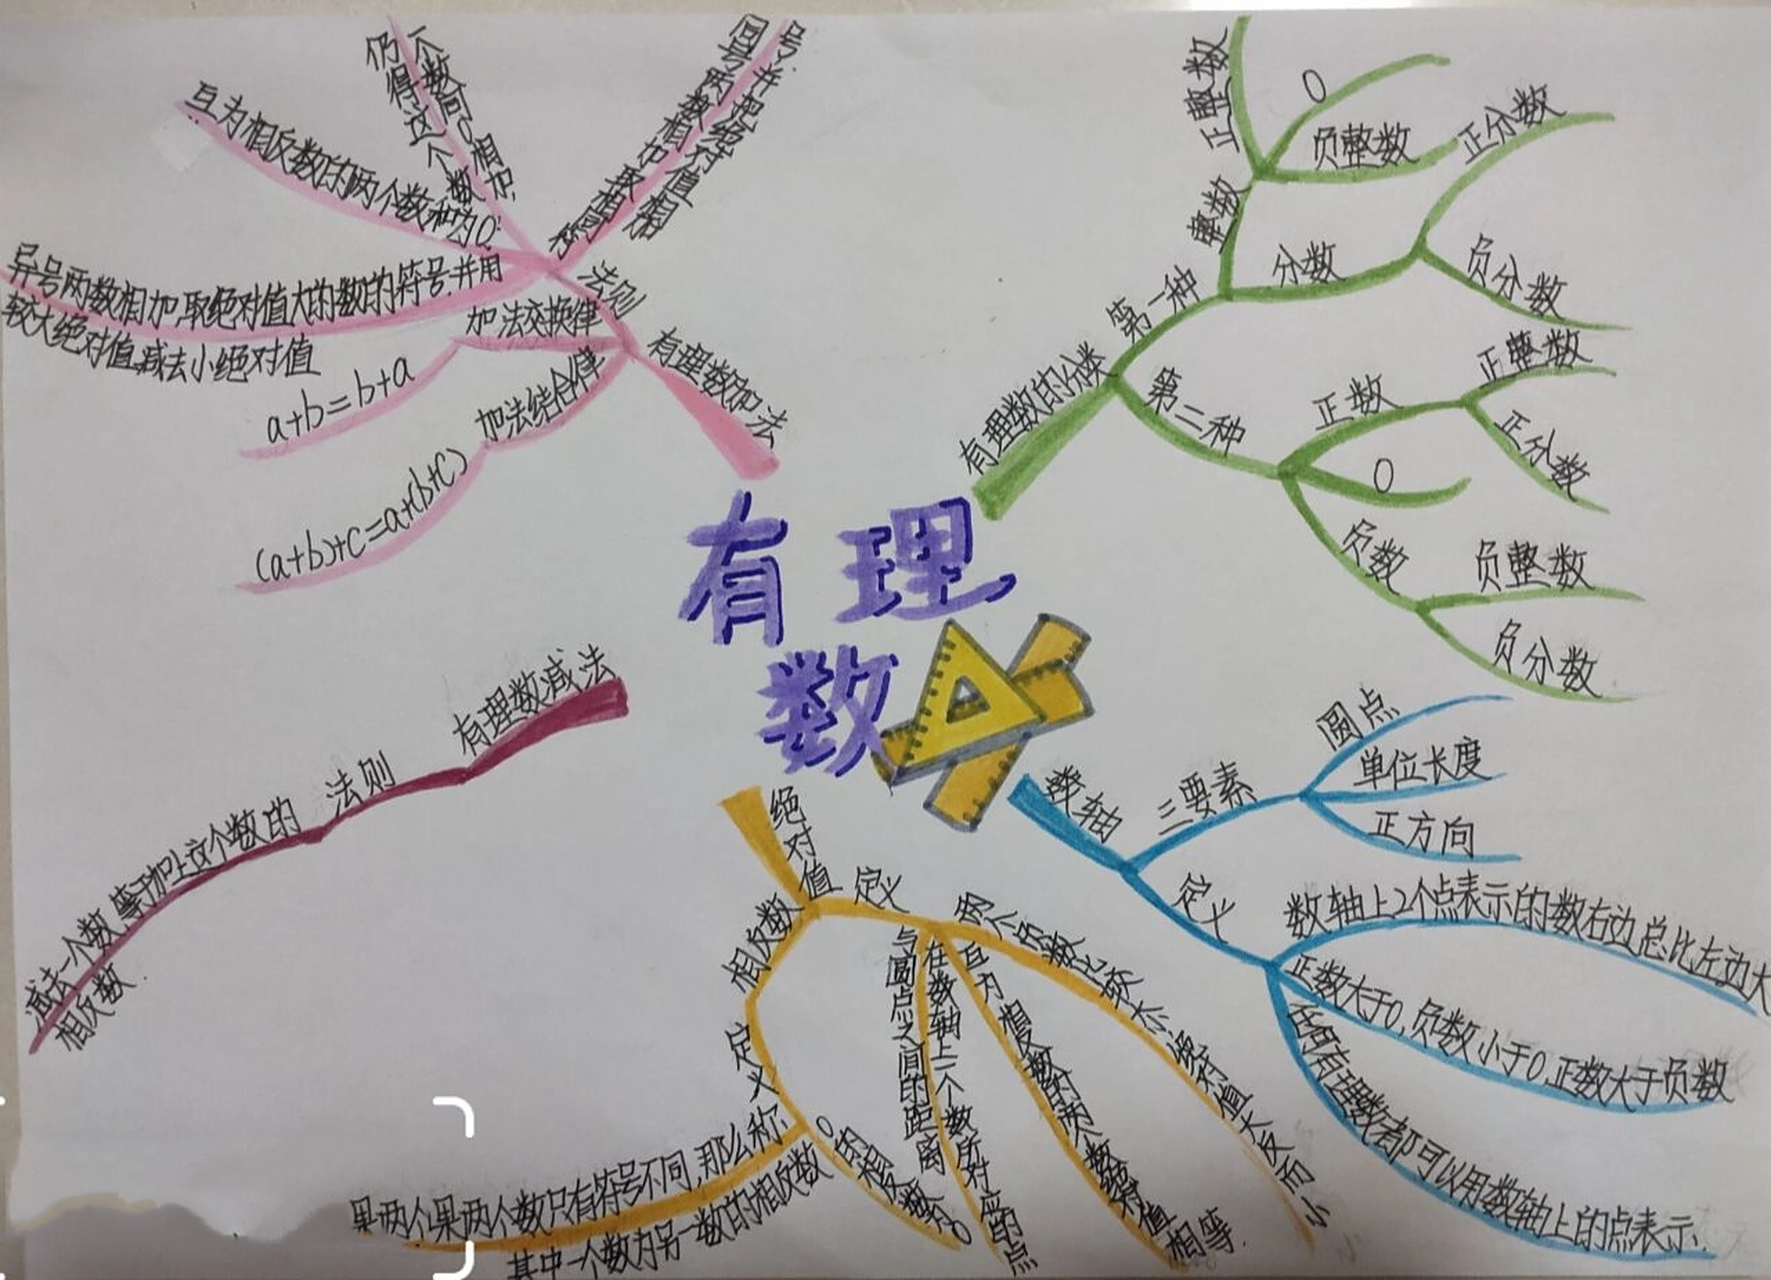 有理
数
有理数的分类
第一种
整数
正整数
0
负整数
分数
正分数
负分数
第二种
正数
正整数
正分数
0
负数
负整数
负分数
数轴
三要素
圆点
单位长度
正方向
定义
数轴上2个点表示的数右边总比左边大
正数大于0,负数小于0,正数大于负数
所有有理数都可以用数轴上的点表示.
绝对值
定义
两个负数比较大小,绝对值大反而小
互为相反数的两数绝对值
相等.
在数轴上一个数所对应的点
与圆点之间的距离
相反数
定义
0的相反数为0
果两个果两个数只有符号不同,那么称
其中一个数为另一数的相反数
有理数减法
法则
减去一个数,等于加上这个数的
相反数.
有理数加法
法则
同号两数相加取相同符
号.并把绝对值相
一个数同0相加,
仍得这个数
互为相反数的两个数和为0.
异号两数相加,取绝对值大的数的符号.并用
较大绝对值减去小绝对值
加法交换律
a+b=b+a
加法结合律
(a+b)+c=a+(b+c)